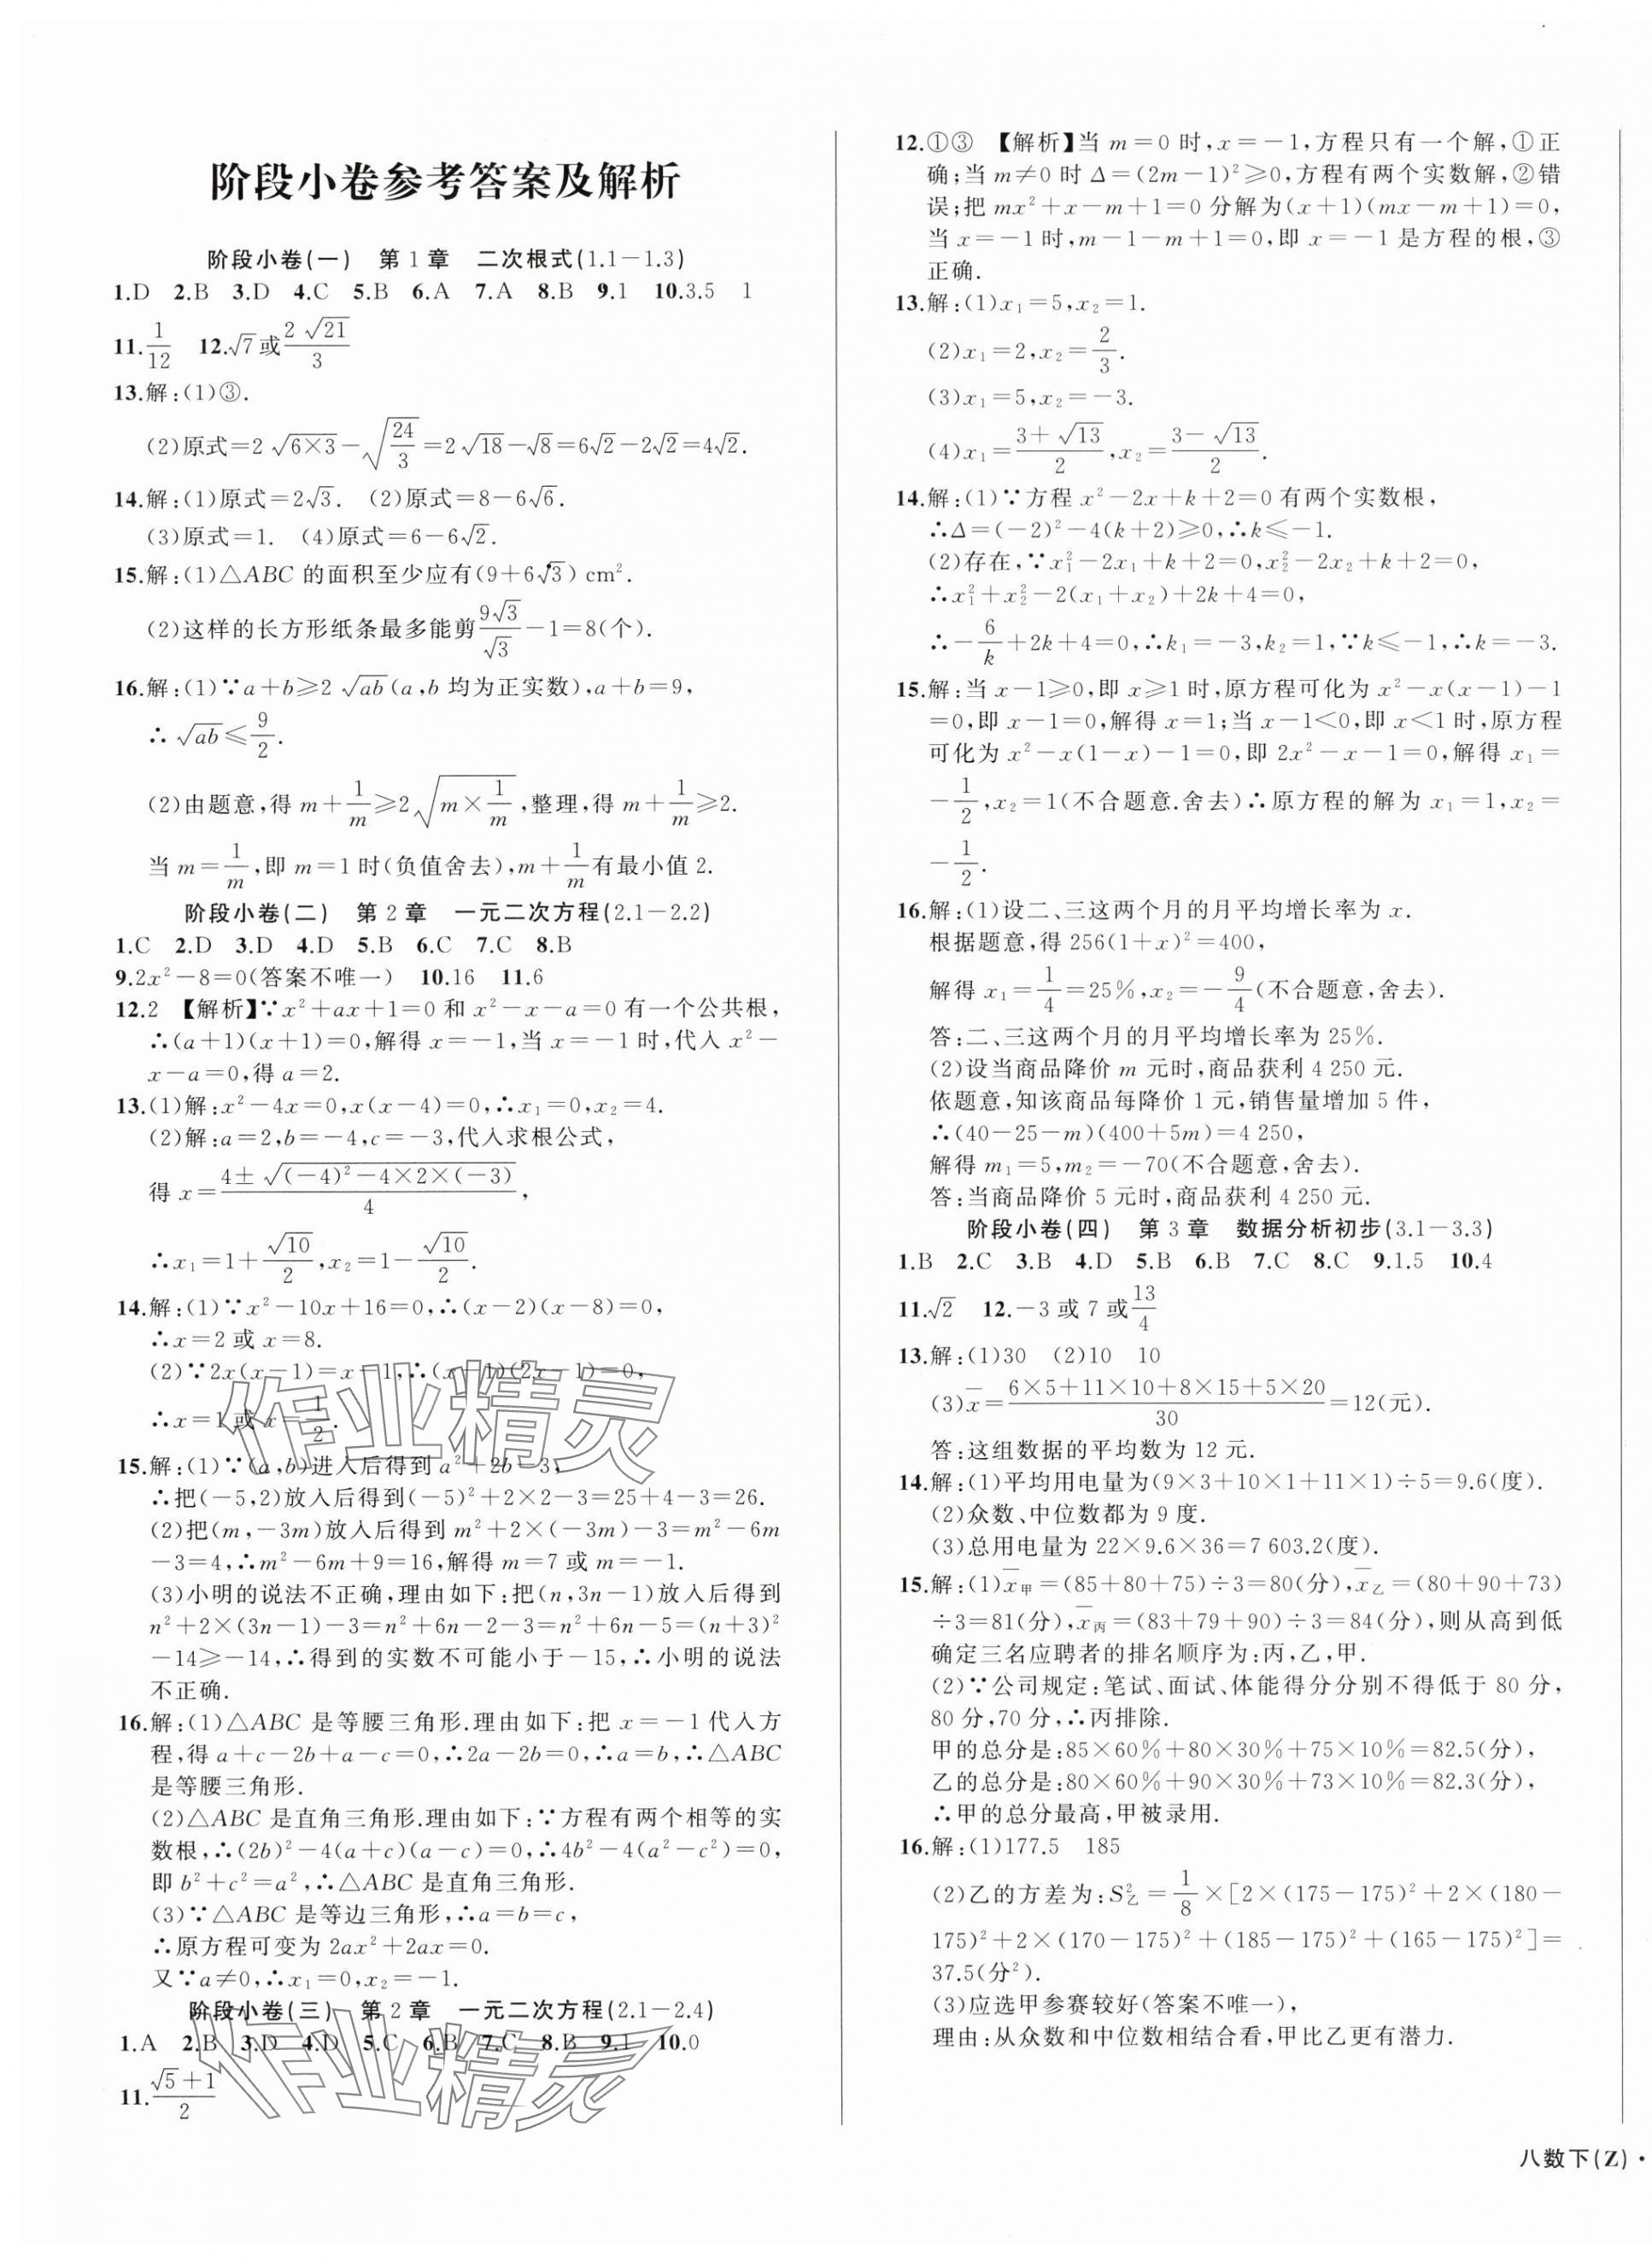 阶段小卷参考答案及解析
阶段小卷(一) 第1章 二次根式(1.1－1.3)
1.D 2.B 3.D 4.C 5.B 6.A 7.A 8.B 9.1 10.3.5 1
11.1/12 12.√7或2√21/3
13.解:(1)③.
(2)原式=2√(6×3)－√(24/3)=2√18－√8=6√2－2√2=4√2.
14.解:(1)原式=2√3. (2)原式=8－6√6.
(3)原式=1. (4)原式=6－6√2.
15.解:(1)△ABC的面积至少应有(9+6√3) cm².
(2)这样的长方形纸条最多能剪9√3/√3－1=8(个).
16.解:(1)∵a+b≥2√ab(a,b均为正实数),a+b=9,
∴√ab≤9/2.
(2)由题意,得m+1/m≥2√(m×1/m),整理,得m+1/m≥2.
当m=1/m,即m=1时(负值舍去),m+1/m有最小值2.
阶段小卷(二) 第2章 一元二次方程(2.1－2.2)
1.C 2.D 3.D 4.D 5.B 6.C 7.C 8.B
9.2x²－8=0(答案不唯一) 10.16 11.6
12.2 【解析】∵x²+ax+1=0和x²－x－a=0有一个公共根,
∴(a+1)(x+1)=0,解得x=－1,当x=－1时,代入x²－
x－a=0,得a=2.
13.(1)解:x²－4x=0,x(x－4)=0,∴x₁=0,x₂=4.
(2)解:a=2,b=－4,c=－3,代入求根公式,
得x=(4±√((－4)²－4×2×(－3)))/4,
∴x₁=1+√10/2,x₂=1－√10/2.
14.解:(1)∵x²－10x+16=0,∴(x－2)(x－8)=0,
∴x=2或x=8.
(2)∵2x(x－1)=x－1,∴(x－1)(2x－1)=0,
∴x=1或x=1/2.
15.解:(1)∵(a,b)进入后得到a²+2b－3,
∴把(－5,2)放入后得到(－5)²+2×2－3=25+4－3=26.
(2)把(m,－3m)放入后得到m²+2×(－3m)－3=m²－6m
－3=4,∴m²－6m+9=16,解得m=7或m=－1.
(3)小明的说法不正确,理由如下:把(n,3n－1)放入后得到
n²+2×(3n－1)－3=n²+6n－2－3=n²+6n－5=(n+3)²
－14≥－14,∴得到的实数不可能小于－15,∴小明的说法
不正确.
16.解:(1)△ABC是等腰三角形.理由如下:把x=－1代入方
程,得a+c－2b+a－c=0,∴2a－2b=0,∴a=b,∴△ABC
是等腰三角形.
(2)△ABC是直角三角形.理由如下:∵方程有两个相等的实
数根,∴(2b)²－4(a+c)(a－c)=0,∴4b²－4(a²－c²)=0,
即b²+c²=a²,∴△ABC是直角三角形.
(3)∵△ABC是等边三角形,∴a=b=c,
∴原方程可变为2ax²+2ax=0.
又∵a≠0,∴x₁=0,x₂=－1.
阶段小卷(三) 第2章 一元二次方程(2.1－2.4)
1.A 2.B 3.D 4.D 5.C 6.B 7.C 8.B 9.1 10.0
11.(√5+1)/2
12.①③ 【解析】当m=0时,x=－1,方程只有一个解,①正
确;当m≠0时Δ=(2m－1)²≥0,方程有两个实数解,②错
误;把mx²+x－m+1=0分解为(x+1)(mx－m+1)=0,
当x=－1时,m－1－m+1=0,即x=－1是方程的根,③
正确.
13.解:(1)x₁=5,x₂=1.
(2)x₁=2,x₂=2/3.
(3)x₁=5,x₂=－3.
(4)x₁=(3+√13)/2,x₂=(3－√13)/2.
14.解:(1)∵方程x²－2x+k+2=0有两个实数根,
∴Δ=(－2)²－4(k+2)≥0,∴k≤－1.
(2)存在,∵x₁²－2x₁+k+2=0,x₂²－2x₂+k+2=0,
∴x₁²+x₂²－2(x₁+x₂)+2k+4=0,
∴－6/k+2k+4=0,∴k₁=－3,k₂=1,∵k≤－1,∴k=－3.
15.解:当x－1≥0,即x≥1时,原方程可化为x²－x(x－1)－1
=0,即x－1=0,解得x=1;当x－1<0,即x<1时,原方程
可化为x²－x(1－x)－1=0,即2x²－x－1=0,解得x₁=
－1/2,x₂=1(不合题意.舍去)∴原方程的解为x₁=1,x₂=
－1/2.
16.解:(1)设二、三这两个月的月平均增长率为x.
根据题意,得256(1+x)²=400,
解得x₁=1/4=25%,x₂=－9/4(不合题意,舍去).
答:二、三这两个月的月平均增长率为25%.
(2)设当商品降价m元时,商品获利4 250元.
依题意,知该商品每降价1元,销售量增加5件,
∴(40－25－m)(400+5m)=4 250,
解得m₁=5,m₂=－70(不合题意,舍去).
答:当商品降价5元时,商品获利4 250元.
阶段小卷(四) 第3章 数据分析初步(3.1－3.3)
1.B 2.C 3.B 4.D 5.B 6.B 7.C 8.C 9.1.5 10.4
11.√2 12.－3或7或13/4
13.解:(1)30 (2)10 10
(3)x̄=(6×5+11×10+8×15+5×20)/30=12(元).
答:这组数据的平均数为12元.
14.解:(1)平均用电量为(9×3+10×1+11×1)÷5=9.6(度).
(2)众数、中位数都为9度.
(3)总用电量为22×9.6×36=7 603.2(度).
15.解:(1)x̄甲=(85+80+75)÷3=80(分),x̄乙=(80+90+73)
÷3=81(分),x̄丙=(83+79+90)÷3=84(分),则从高到低
确定三名应聘者的排名顺序为:丙,乙,甲.
(2)∵公司规定:笔试、面试、体能得分分别不得低于80分,
80分,70分,∴丙排除.
甲的总分是:85×60%+80×30%+75×10%=82.5(分),
乙的总分是:80×60%+90×30%+73×10%=82.3(分),
∴甲的总分最高,甲被录用.
16.解:(1)177.5 185
(2)乙的方差为:S²乙=1/8×[2×(175－175)²+2×(180－
175)²+2×(170－175)²+(185－175)²+(165－175)²]=
37.5(分²).
(3)应选甲参赛较好(答案不唯一),
理由:从众数和中位数相结合看,甲比乙更有潜力.
八数下(Z)·
作业精灵
作业精灵